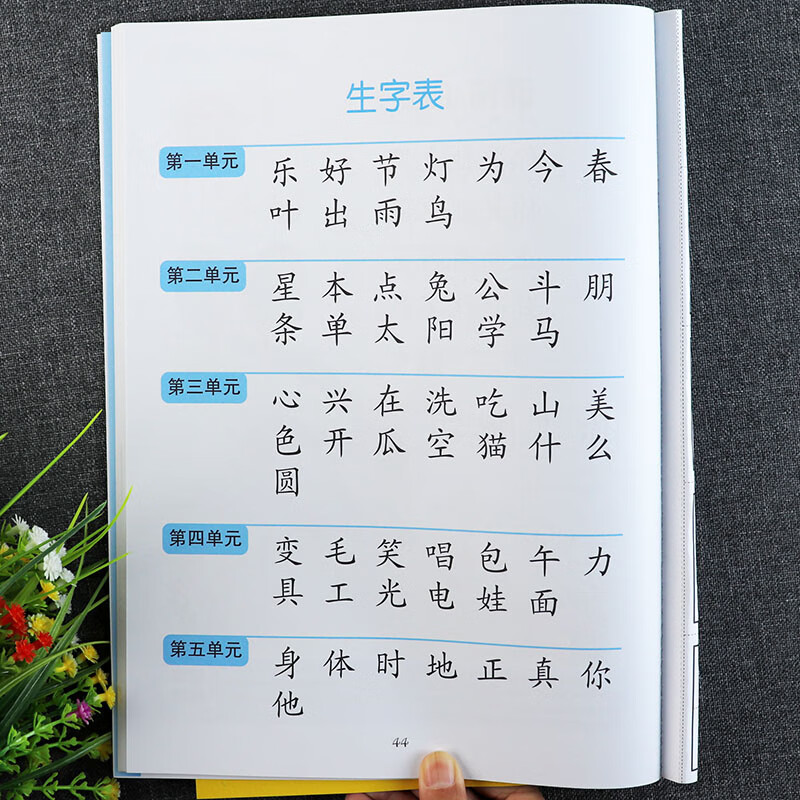 生字表
第一单元 乐 好 节 灯 为 今 春
叶 出 雨 鸟
第二单元 星 本 点 兔 公 斗 朋
条 单 太 阳 学 马
第三单元 心 兴 在 洗 吃 山 美
色 开 瓜 空 猫 什 么
圆
第四单元 变 毛 笑 唱 包 午 力
具 工 光 电 娃 面
第五单元 身 体 时 地 正 真 你
他
44